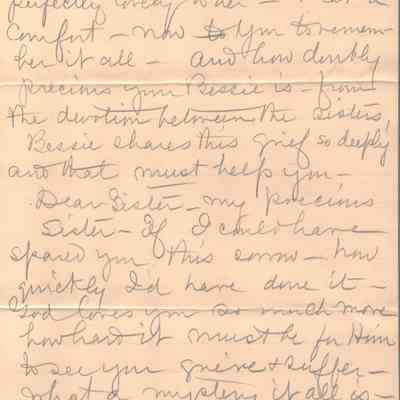 perfectly lovely
Comfort - now to you to remem
ber it all - and how doubly
precious your Bessie is - from
the devotion between the sisters,
Bessie shares this grief so deeply
and that must help you -
Dear Sister - my precious
Sister - If I could have
spared you this sorrow - how
quickly I'd have done it -
God loves you so much more
how hard it must be for Him
to see you grieve & suffer -
what a mystery it all is -